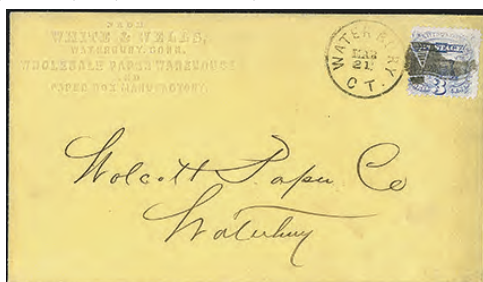 FROM
WHITE & WELLS,
WATERBURY, CONN.
WHOLESALE PAPER WAREHOUSE
AND
PAPER BOX MANUFACTORY.
WATERBURY
MAR
21
CT.
POSTAGE
3
Wolcott Paper Co
Waterbury